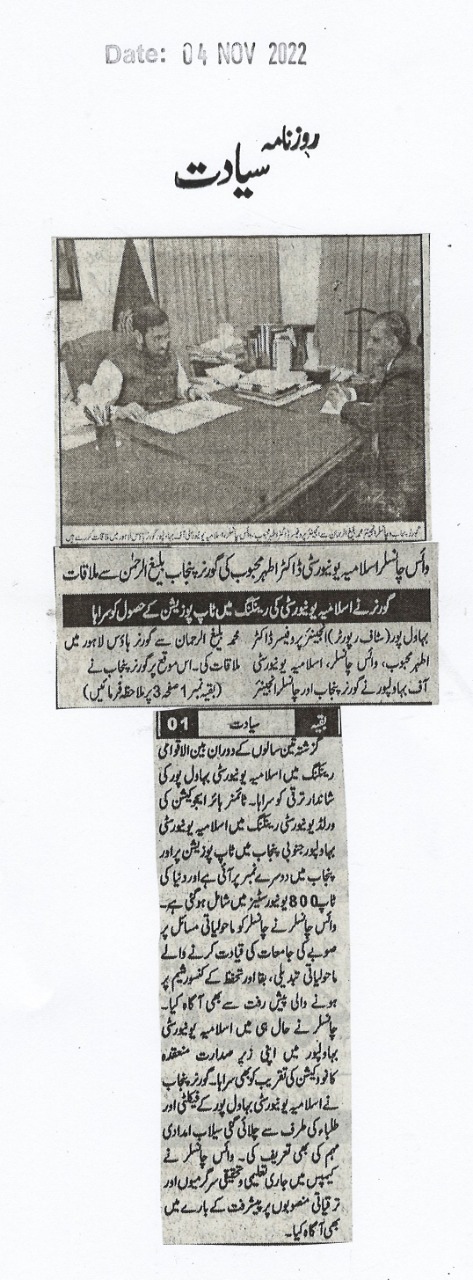 Date: 04 NOV 2022
روزنامہ
سیادت
گورنر پنجاب و چانسلر انجینئر محمد بلیغ الرحمان سے انجینئر پروفیسر ڈاکٹر اطہر محبوب، وائس چانسلر اسلامیہ یونیورسٹی آف بہاولپور گورنر ہاؤس لاہور میں ملاقات کر رہے ہیں
وائس چانسلر اسلامیہ یونیورسٹی ڈاکٹر اطہر محبوب کی گورنر پنجاب بلیغ الرحمٰن سے ملاقات
گورنر نے اسلامیہ یونیورسٹی کی رینکنگ میں ٹاپ پوزیشن کے حصول کو سراہا
بہاول پور (سٹاف رپورٹر) انجینئر پروفیسر ڈاکٹر
اطہر محبوب، وائس چانسلر، اسلامیہ یونیورسٹی
آف بہاولپور نے گورنر پنجاب اور چانسلر انجینئر
محمد بلیغ الرحمان سے گورنر ہاؤس لاہور میں
ملاقات کی۔ اس موقع پر گورنر پنجاب نے
(بقیہ نمبر 1 صفحہ 3 پر ملاحظہ فرمائیں)
بقیہ سیادت 01
گزشتہ تین سالوں کے دوران بین الاقوامی
رینکنگ میں اسلامیہ یونیورسٹی بہاول پور کی
شاندار ترقی کو سراہا۔ ٹائمنر ہائر ایجوکیشن کی
ورلڈ یونیورسٹی رینکنگ میں اسلامیہ یونیورسٹی
بہاولپور جنوبی پنجاب میں ٹاپ پوزیشن پر اور
پنجاب میں دوسرے نمبر پر آئی ہے اور دنیا کی
ٹاپ 800 یونیورسٹیز میں شامل ہو گئی ہے۔
وائس چانسلر نے چانسلر کو ماحولیاتی مسائل پر
صوبے کی جامعات کی قیادت کرنے والے
ماحولیاتی تبدیلی، بقا اور تحفظ کے کنسورشیم پر
ہونے والی پیش رفت سے بھی آگاہ کیا۔
چانسلر نے حال ہی میں اسلامیہ یونیورسٹی
بہاولپور میں اپنی زیر صدارت منعقدہ
کانووکیشن کی تقریب کو بھی سراہا۔ گورنر پنجاب
نے اسلامیہ یونیورسٹی بہاول پور کے فیکلٹی اور
طلباء کی طرف سے چلائی گئی سیلاب امدادی
مہم کی بھی تعریف کی۔ وائس چانسلر نے
کیمپس میں جاری تعلیمی و تحقیقی سرگرمیوں اور
ترقیاتی منصوبوں پر پیشرفت کے بارے میں
بھی آگاہ کیا۔